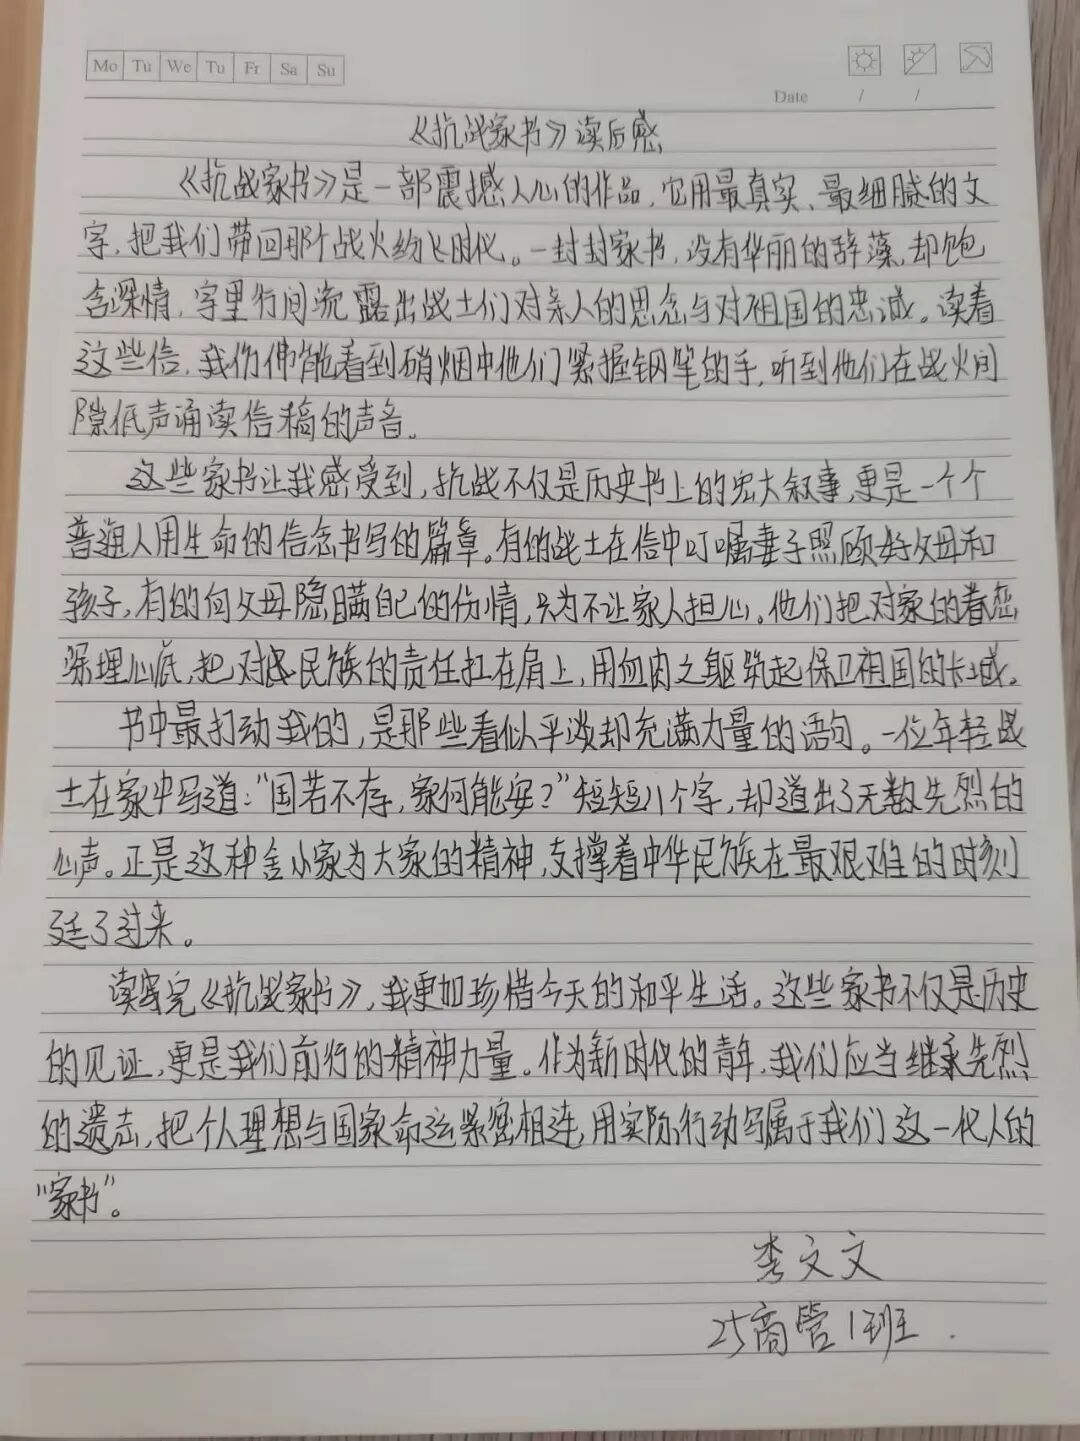 Mo Tu We Tu Fr Sa Su
Date / /
《抗战家书》读后感
《抗战家书》是一部震撼人心的作品,它用最真实、最细腻的文
字,把我们带回那个战火纷飞时代。一封封家书,没有华丽的辞藻,却饱
含深情,字里行间流露出战士们对亲人的思念与对祖国的忠诚。读着
这些信,我仿佛能看到硝烟中他们紧握钢笔的手,听到他们在战火间
隙低声诵读信稿的声音。
这些家书让我感受到,抗战不仅是历史书上的宏大叙事,更是一个个
普通人用生命的信念书写的篇章。有的战士在信中叮嘱妻子照顾好父母和
孩子,有的向父母隐瞒自己的伤情,只为不让家人担心。他们把对家的眷恋
深埋心底,把对民族的责任扛在肩上,用血肉之躯筑起保卫祖国的长城。
书中最打动我的,是那些看似平淡却充满力量的语句。一位年轻战
士在家中写道:“国若不存,家何能安?”短短八个字,却道出了无数先烈的
心声。正是这种舍小家为大家的精神,支撑着中华民族在最艰难的时刻
挺了过来。
读完《抗战家书》,我更加珍惜今天的和平生活。这些家书不仅是历史
的见证,更是我们前行的精神力量。作为新时代的青年,我们应当继承先烈
的遗志,把个人理想与国家命运紧密相连,用实际行动写属于我们这一代人的
“家书”。
李文文
25商管1班.